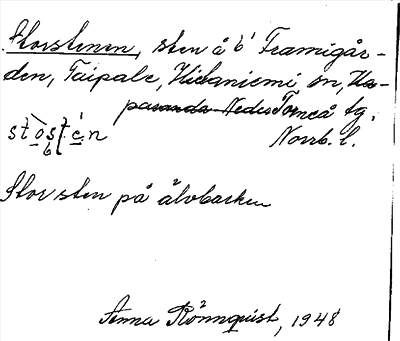 Storstenen, sten å b¹ Framigår-
den, Taipale, Hietaniemi sn, Ha-
paranda-Neder Torneå tg,
Norrb. l.
Stor sten på älvbacken
Anna Rönnquist, 1948